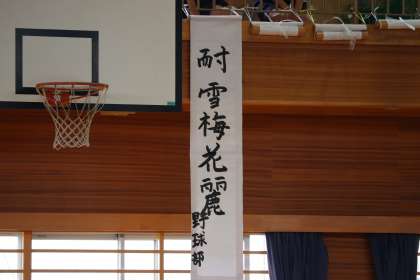 耐雪梅花麗
野球部